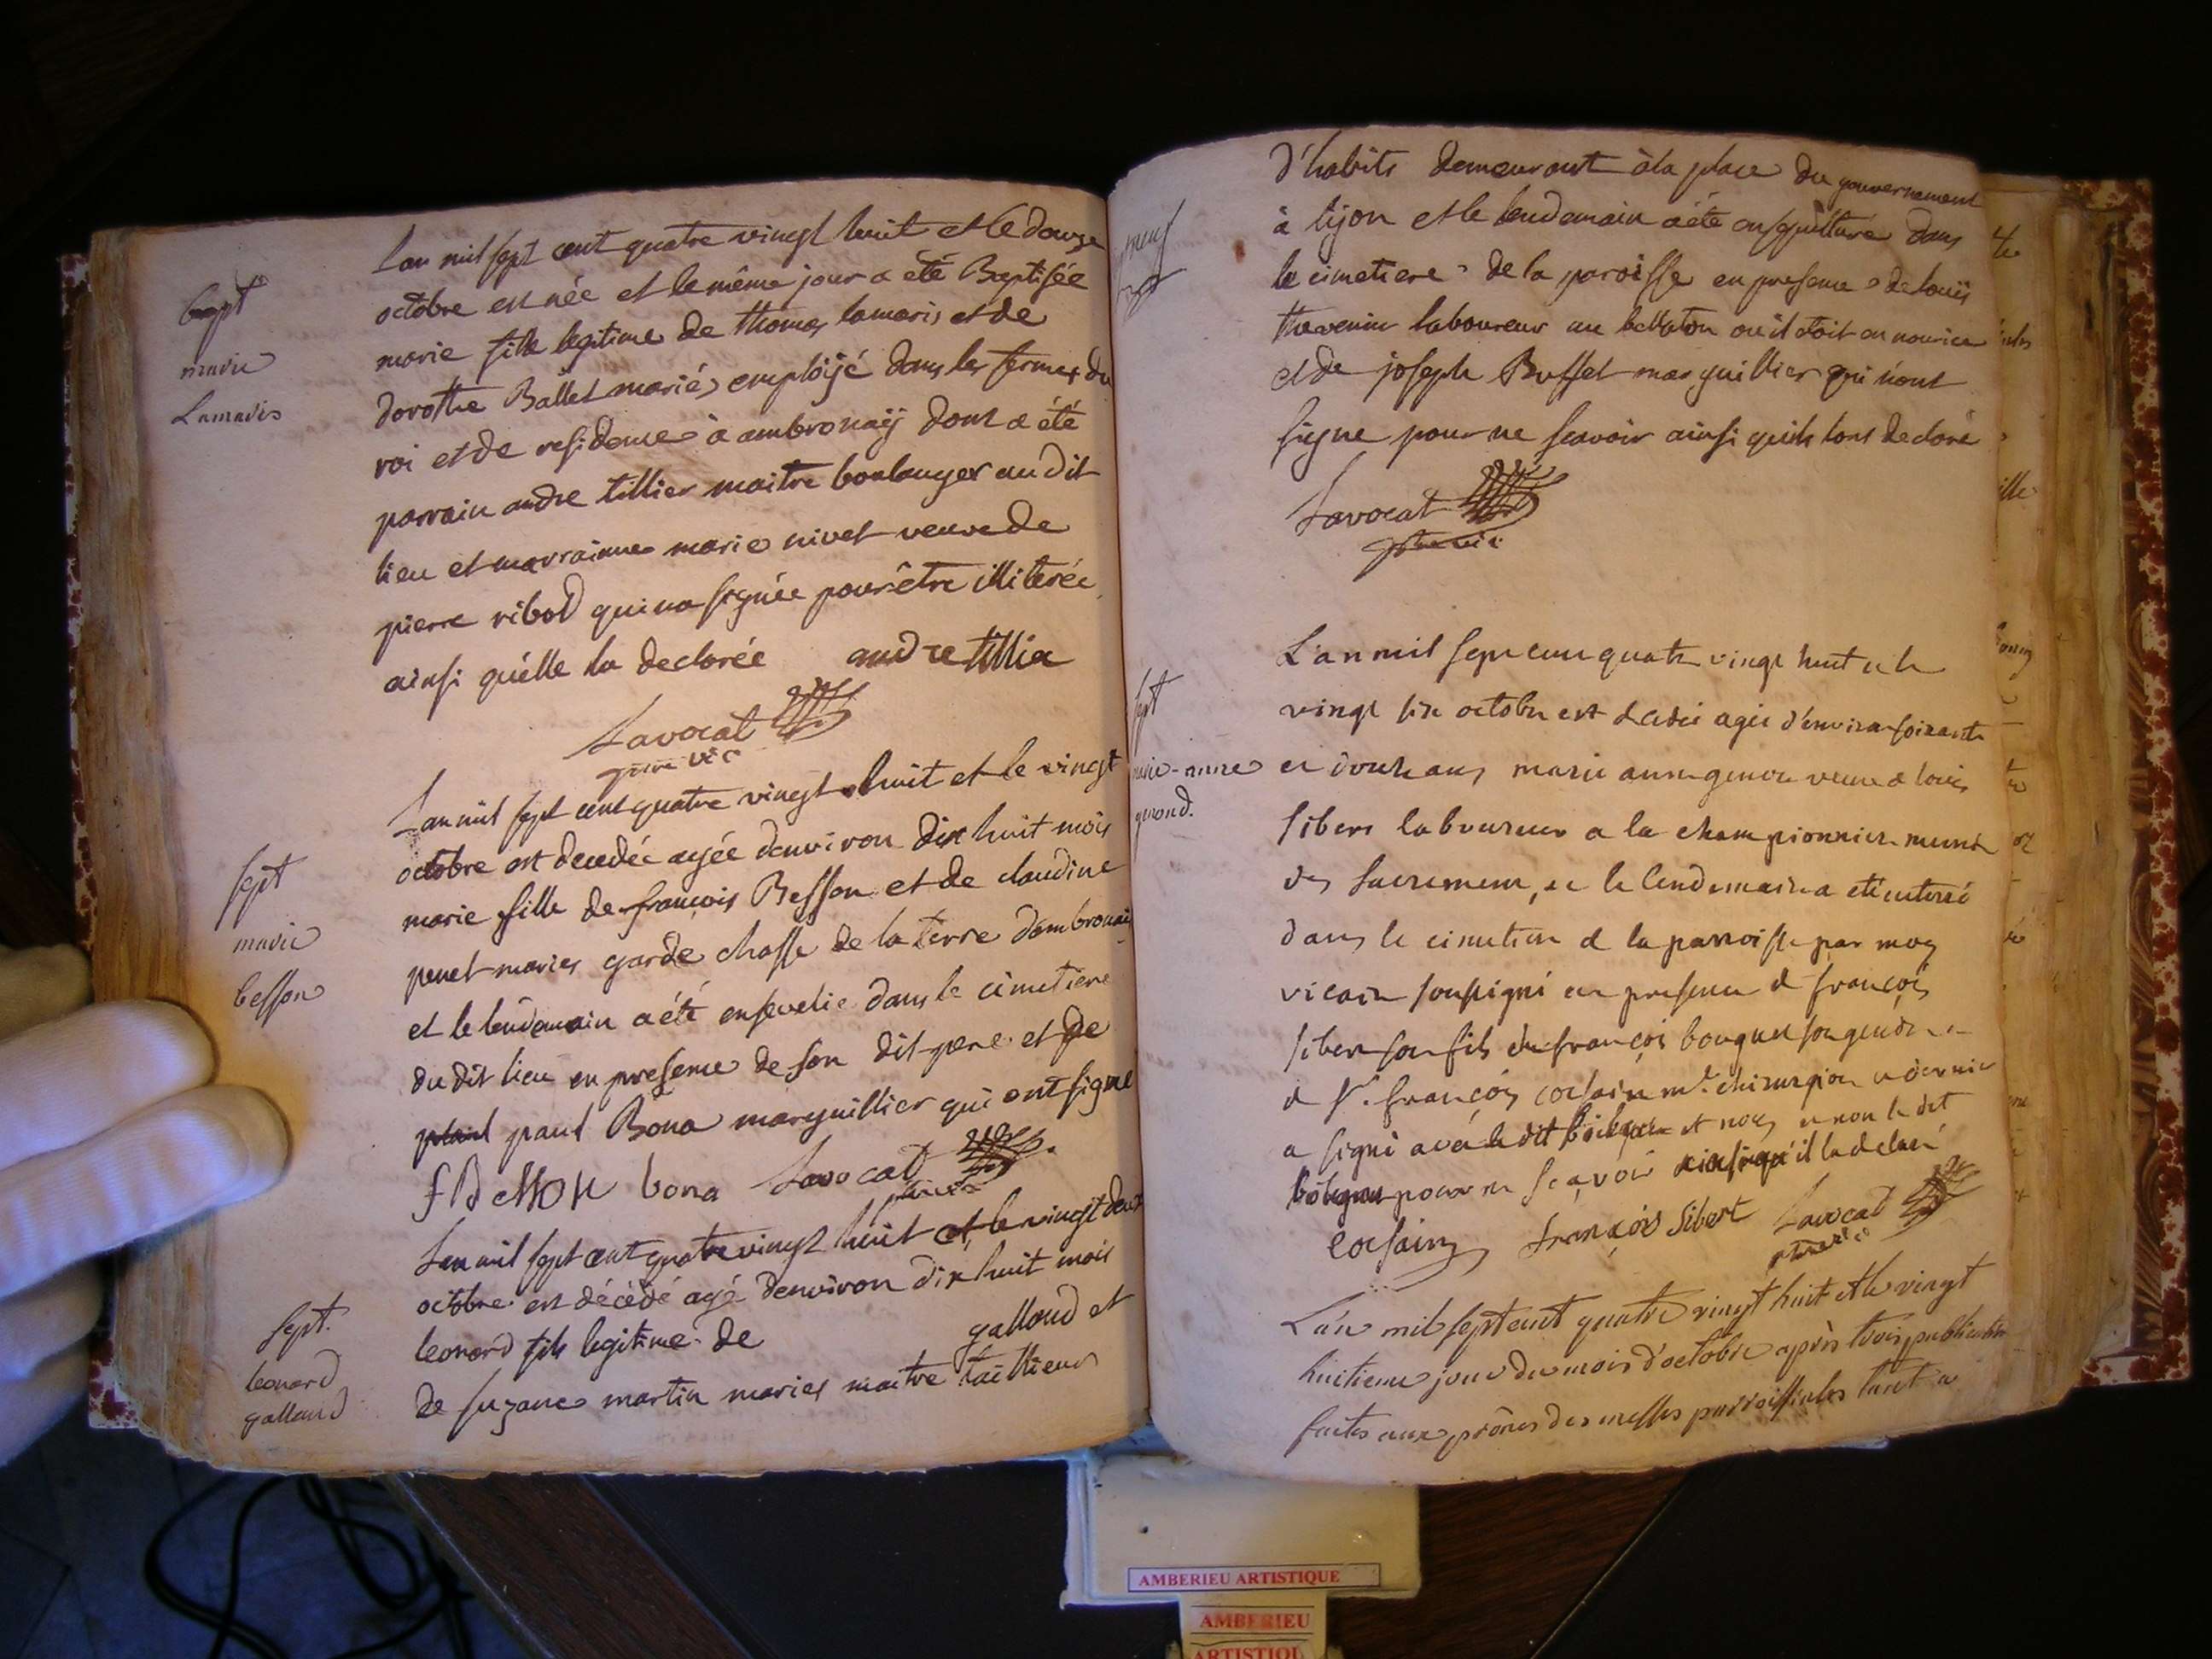 bapt
marie
Lamaris
Lan mil sept cent quatre vingt huit et le douze
octobre est née et le même jour a été Baptisée
marie fille legitime de thomas lamaris et de
dorothe Ballet mariés emploijé dans les fermes du
roi et de residence à ambronaÿ dont a été
parrain andre tillier maitre boulanger au dit
lieu et marrainne marie nivet veuve de
pierre ribod qui na signée pour être illiterée
ainsi quélle la declarée andre tillier
Lavocat
sept
marie
besson
Lan mil sept cent quatre vingt huit et le vingt
octobre est decedée agée denviron dix huit mois
marie fille de françois Besson et de claudine
penet maries garde chasse de la terre dambronaÿ
et le lendemain a été ensevelie dans le cimetiere
du dit lieu en presence de son dit pere et de
paul Bona marguillier qui ont signé
f Besson bona Lavocat
sept.
leonard
galland
Lan mil sept cent quatre vingt huit et le vingt deux
octobre est décédé agé denviron dix huit mois
leonard fils legitime de galland et
de suzane martin maries maitre taillieur
d'habits demeurant à la place du gouvernement
à lijon et le lendemain a été ensépulturé dans
le cimetiere de la paroisse en presence de louis
thevenin laboureur au bellaton ou il etoit en nourice
et de joseph Buffet marguillier qui n'ont
signe pour ne scavoir ainsi quils lont declaré
Lavocat
sept
marie-anne
L'an mil sept cent quatre vingt huit et le
vingt six octobre est decedée agée d'environ soixante
et douze ans marie anne veuve de louis
sibert laboureur a la championniere munie
des sacremens, et le lendemain a été enterré
dans le cimetiere de la parroisse par moy
vicaire soussigné en presence de françois
sibert son fils de françois bouquet son gendre et
de Sr. françois corsain me. chirurgien ce dernier
a signé avec le dit et nous et non le dit
pour ne sçavoir ainsi qu'il la declaré
corsain françois sibert Lavocat
L'an mil sept cent quatre vingt huit et le vingt
huitieme jour du mois d'octobre après trois publications
faites aux prônes des messes parroissiales tant a
AMBERIEU ARTISTIQUE
AMBERIEU